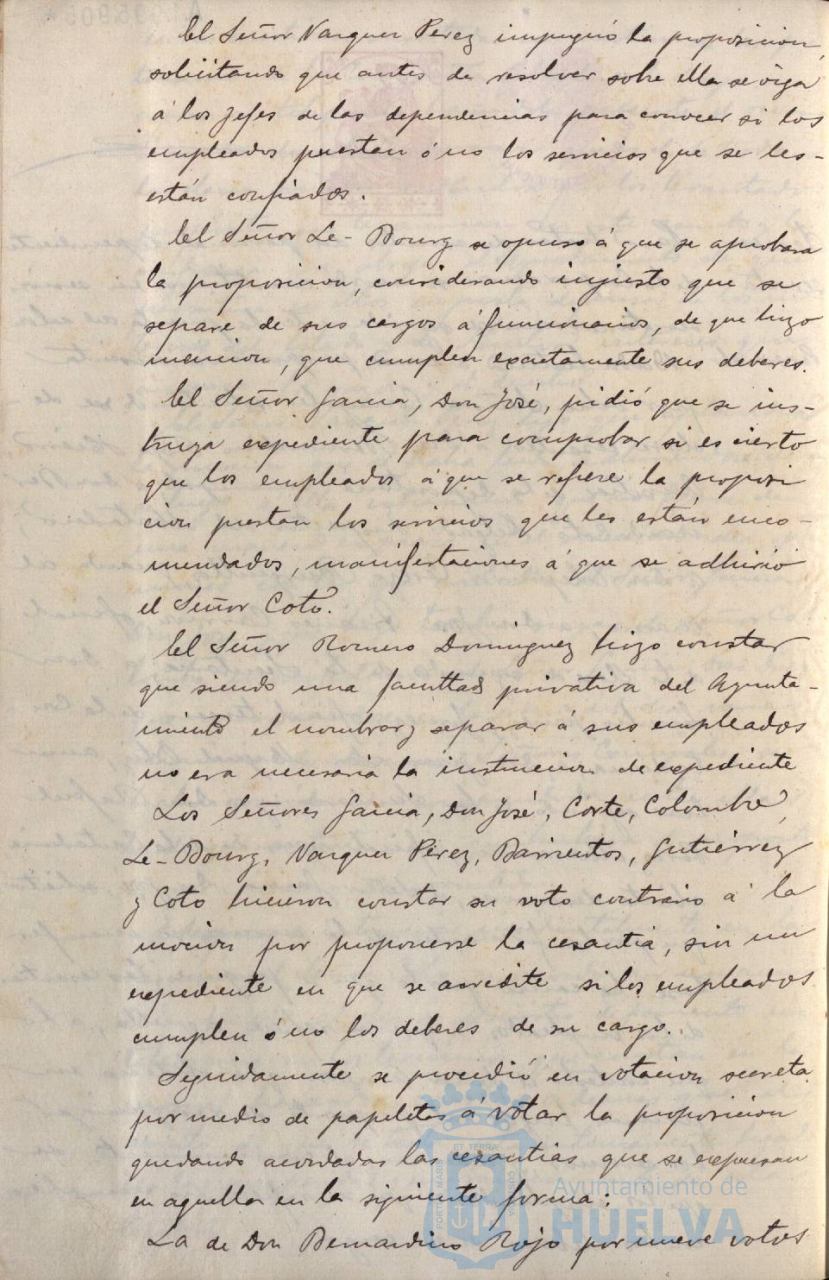 El Señor Vazquez Perez impugnó la proposicion,
solicitando que antes de resolver sobre ella se oiga
á los Jefes de las dependencias para conocer si los
empleados prestan ó no los servicios que se les-
están confiados.
El Señor Le-Bourg se opuso á que se aprobara
la proposicion, considerando injusto que se
separe de sus cargos á funcionarios, de que hizo
mencion, que cumplen exactamente sus deberes.
El Señor Garcia, Don José, pidió que se ins-
truya expediente para comprobar si es cierto
que los empleados á que se refiere la proposi
cion prestan los servicios que les están enco-
mendados, manifestaciones á que se adhirió
el Señor Coto.
El Señor Romero Dominguez hizo constar
que siendo una facultad privativa del Ayunta-
miento el nombrar y separar á sus empleados
no era necesaria la instruccion de expediente
Los Señores Garcia, Don José, Corte, Colombo,
Le-Bourg, Vazquez Pérez, Barrientos, Gutiérrez
y Coto hicieron constar su voto contrario á la
mocion por proponerse la cesantia, sin un
expediente en que se acredite si los empleados
cumplen ó no los deberes de su cargo.
Seguidamente se procedió en votacion secreta
por medio de papeletas á votar la proposicion
quedando acordadas las cesantias que se expresan
en aquella en la siguiente forma:
La de Don Bernardino Rojo por nueve votos
PORTUS MARIS ET TERRAE CUSTODIA
Ayuntamiento de
HUELVA